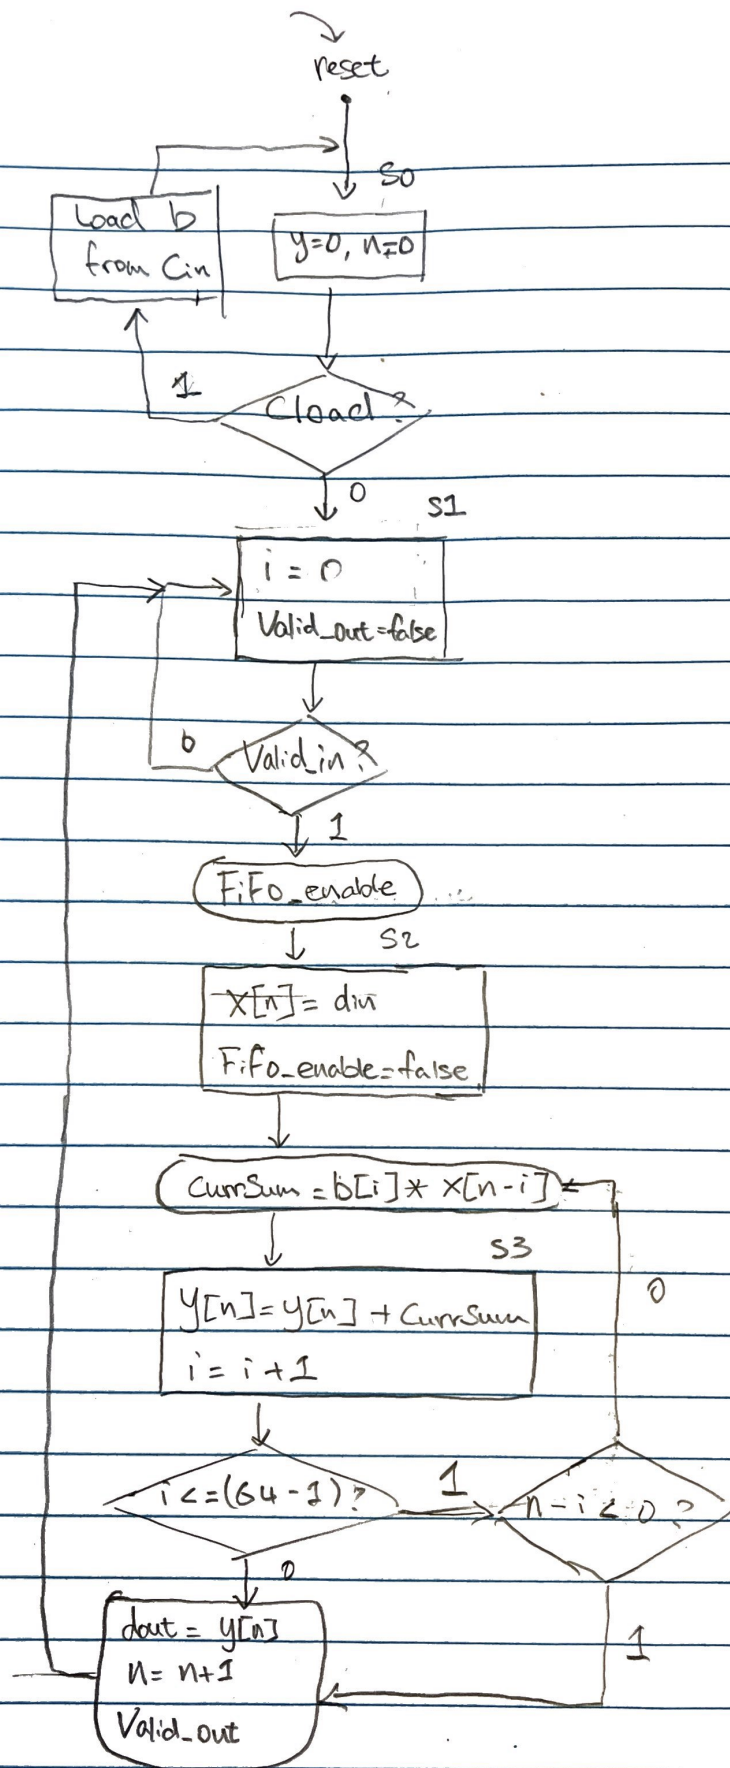 reset
S0
Load b
from Cin
y=0, n=0
1
Cload?
0
S1
i = 0
Valid_out=false
0
Valid_in?
1
FiFo_enable
S2
x[n]= din
FiFo_enable=false
CurrSum = b[i]* x[n-i]
S3
y[n]=y[n] + CurrSum
i= i+1
0
i<=(64-1)?
1
n-i<0?
0
1
dout = y[n]
n= n+1
Valid_out